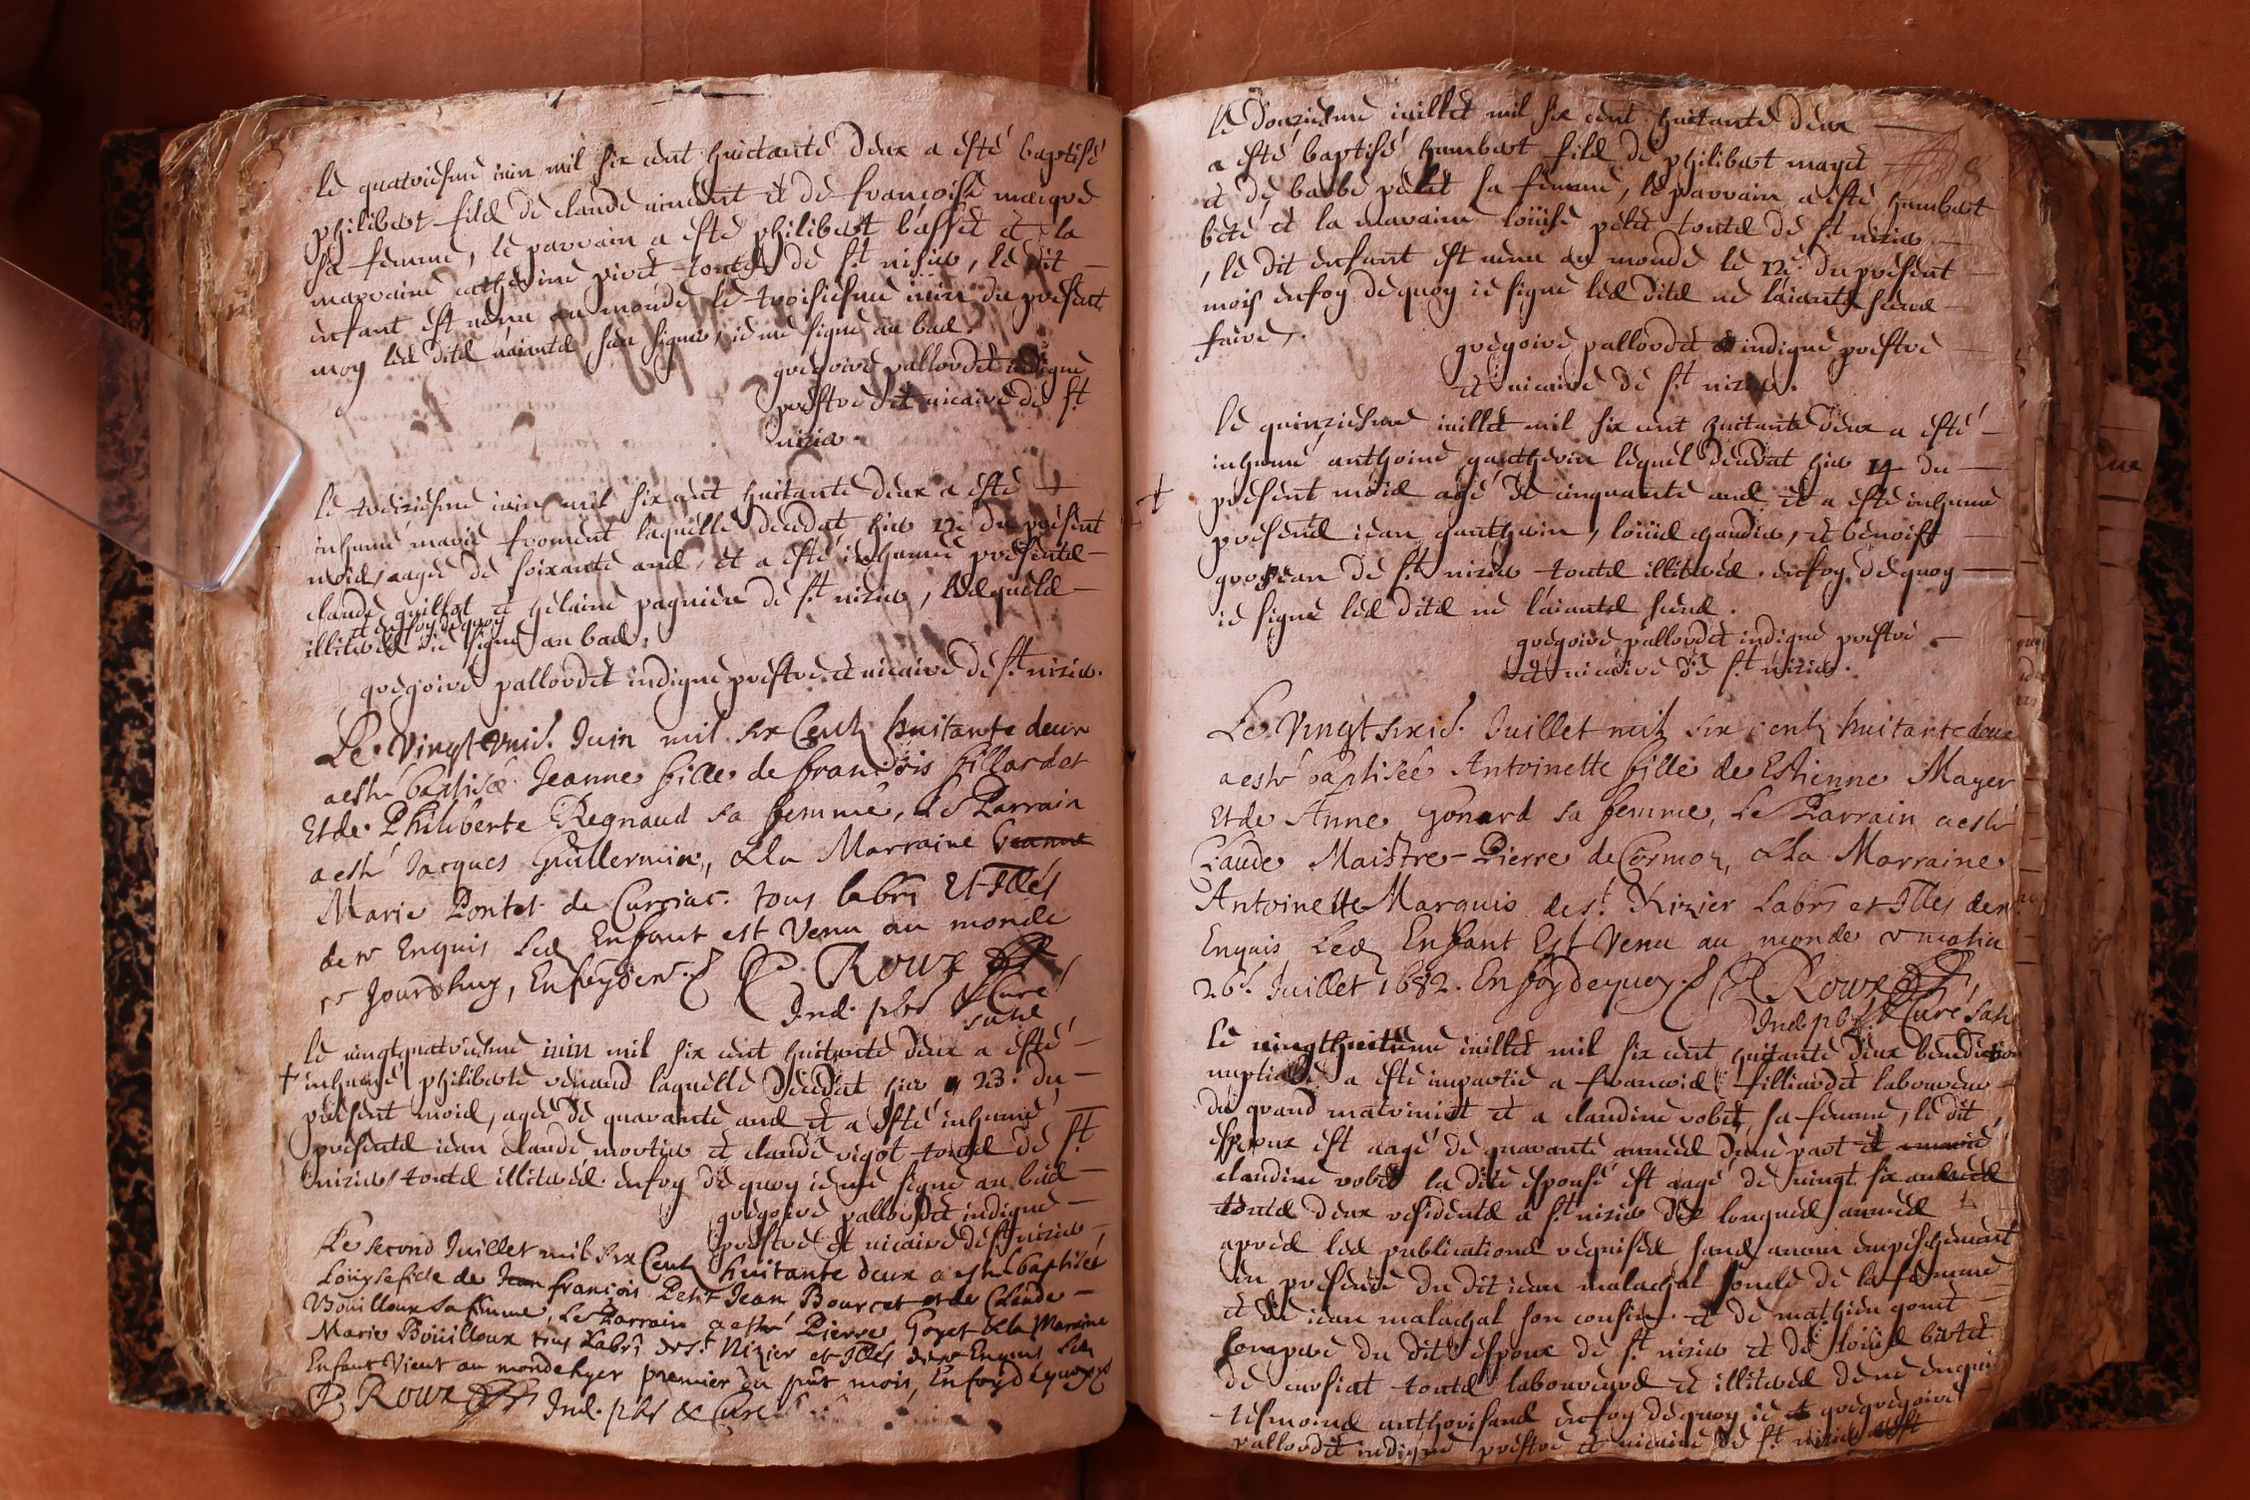 le quatriesme iuin mil six cent huictante deux a esté baptisé
philibert fils de claude vincent et de françoise
sa femme, le parrain a esté philibert basset et la
marraine catherine pivet touts de st nisier, le dit
enfant est venu au monde le troisiesme iuin du present
moy les dits n'aiants sceu signer, ie me signe au bas.
gregoire pallordet indigne
prestre et vicaire de st
nizier.
le treiziesme iuin mil six cent huitante deux a esté
inhumé marie froment laquelle deceda hier 12e du present
mois, aagee de soixante ans, et a esté inhumee presents
claude guillot et helaine pagnieu de st nizier, lesquels
et enfoy de quoy
illiteres ie signe au bas,
gregoire pallordet indigne prestre et vicaire de st nizier.
Le vingt unis. Juin mil six Centz huitante deux
a esté baptisée Jeanne fille de françois fillardet
Et de Philiberte Regnaud sa femme, Le Parrain
a esté Jacques Guillermin, & la Marraine Jeanne
Marie Pontet de Curciat. tous labrs Et Illés
de ce Enquis Led Enfant est Venu au monde
ce Jourdhuy, Enfoy de ce. P. Roux
Ind. pbr & Curé
susd
le vingtquatriesme iuin mil six cent huitante deux a esté
+ inhumé philiberte renaud laquelle deceda hier 23. du
present mois, agee de quarante ans et a esté inhumé
presents iean claude mortier et claude rigot touts de st
nizier touts illiteres. enfoy de quoy ie me signe au bas
gregoire pallordet indigne
prestre et vicaire de st nizier
Le second Juillet mil six Centz huitante deux a esté baptisée
Louyse fille de Jean françois Petit Jean Bourcet et de Claude
Bouilloux sa femme, Le Parrain a esté Pierre Goyet & la Maraine
Marie Boüilloux tous Labrs de st Nizier et Illés de ce Enquis Led
Enfant Vient au monde hyer premier du pnt mois, Enfoy de quoy
P. Roux Ind. pbr & Curé
le douziesme iuillet mil six cent huitante deux
a esté baptisé humbert fils de philibert mayet
et de barbe petit sa femme, le parrain a esté humbert
beté et la maraine loüise petit touts de st nizier
, le dit enfant est venu au monde le 12e. du present
mois enfoy de quoy ie signe les dits ne l'aiants sceus
faire.
gregoire pallordet indigne prestre
et vicaire de st nizier.
le quinziesme iuillet mil six cent huitante deux a esté
inhumé anthoine gautheron lequel deceda hier 14 du
+ present mois agé de cinquante ans et a esté inhumé
presents iean gautheron, loüis chaudier, et benoist
grosjean de st nizier touts illiteres. enfoy de quoy
ie signe les dits ne l'aiants sceus.
gregoire pallordet indigne prestre
et vicaire de st nizier.
Le Vingt sixis. Juillet mil six centz huitante deux
a esté baptisée Antoinette fille de Estienne Mayer
Et de Anne Gonard sa femme, Le Parrain a esté
Claude Maistre-Pierre de Cormoz, & la Marraine
Antoinette Marquis de st. Nizier Labrs et Illés de ce
Enquis Led Enfant Est Venu au monde ce matin
26e. Juillet 1682. Enfoy de quoy. P. Roux
Ind. pbr & Curé susd
le vingthuitième iuillet mil six cent huitante deux benediction
nuptiale a esté impartie a françois filliardet laboureur
du grand malvinist et a claudine robet sa femme, le dit
espoux est aagé de quarante années d'une part et
claudine robet la dite espouse est aagé de vingt six années
touts deux residents a st nizier dez longues années
apres les publications requises sans aucun empeschement
en presence du dit iean malachal loncle de la femme
et de iean malachal son cousin et de mathieu gonet
compere du dit espoux de st nizier et de loüis butet
de cursiat touts laboureurs et illiteres de ce enquis
tesmoins authorisants enfoy de quoy ie gregoire
pallordet indigne prestre et vicaire de st nizier